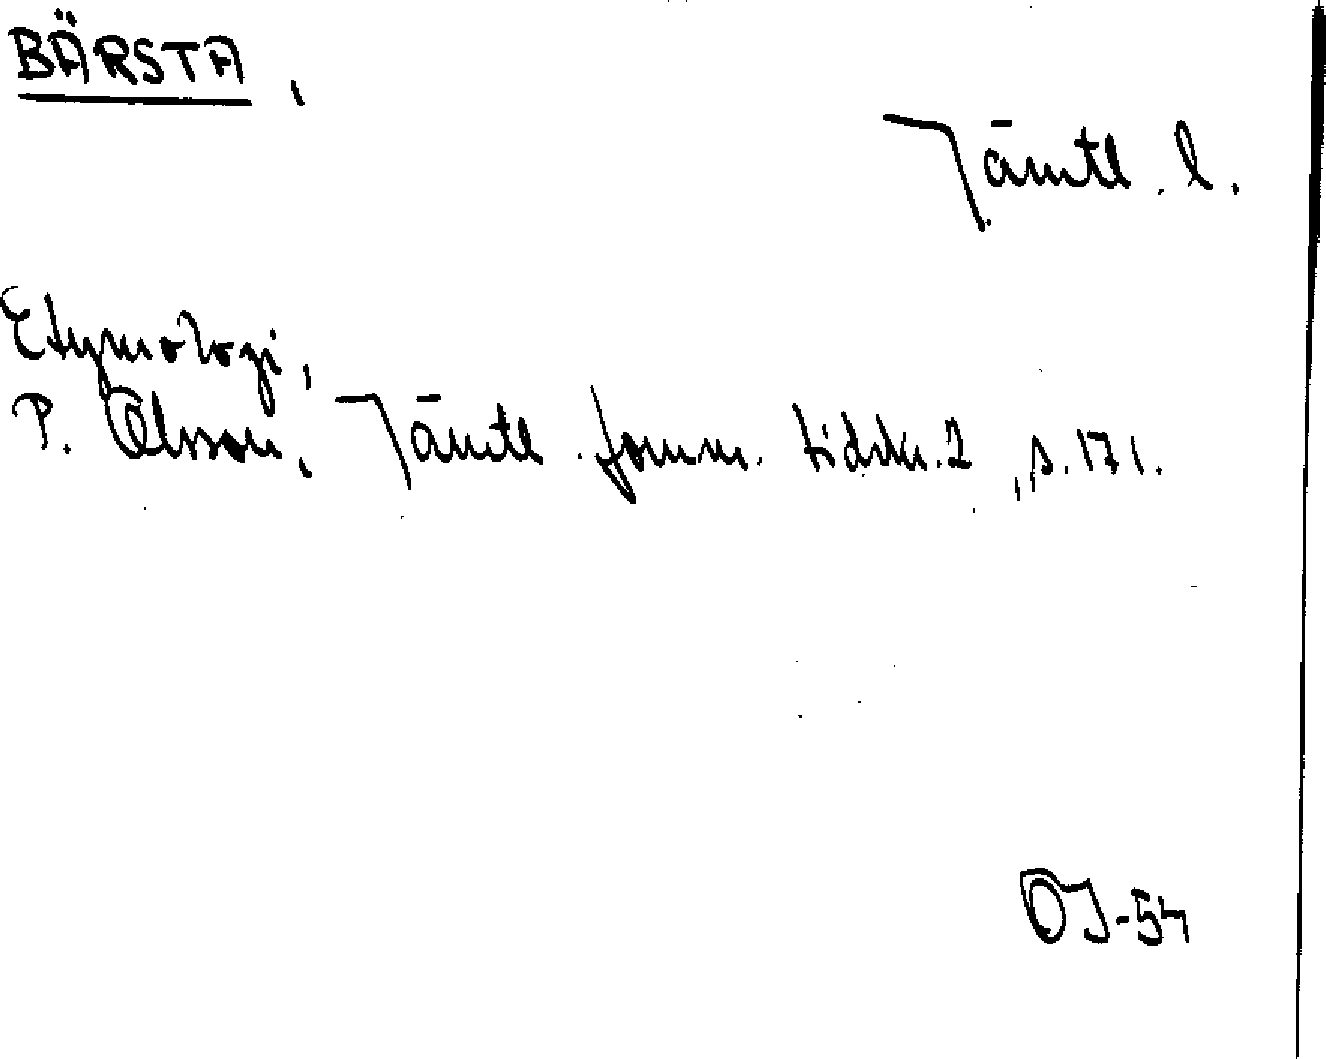 BÄRSTA,
Jämtl. l.
Etymologi,
P. Olsson, Jämtl. fornm. tidskr. 2, s. 171.
OJ-54